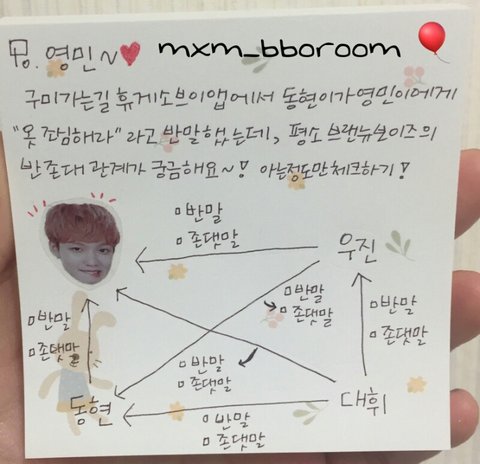 To. 영민~♥
mxm_bboroom
구미가는길 휴게소브이앱에서 동현이가영민이에게
"옷 조심해라" 라고 반말했는데, 평소 브랜뉴보이즈의
반존대 관계가 궁금해요~! 아는정도만체크하기!
□반말
□존댓말
우진
□반말
□존댓말
□반말
□존댓말
□반말
□존댓말
□반말
□존댓말
동현
대휘
□반말
□존댓말